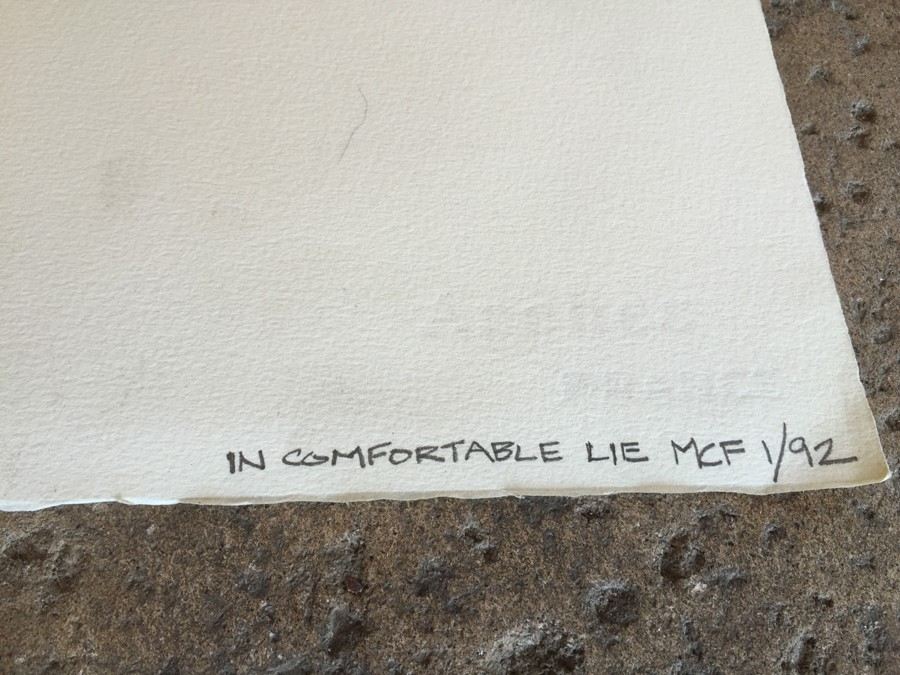 IN COMFORTABLE LIE MCF 1/92